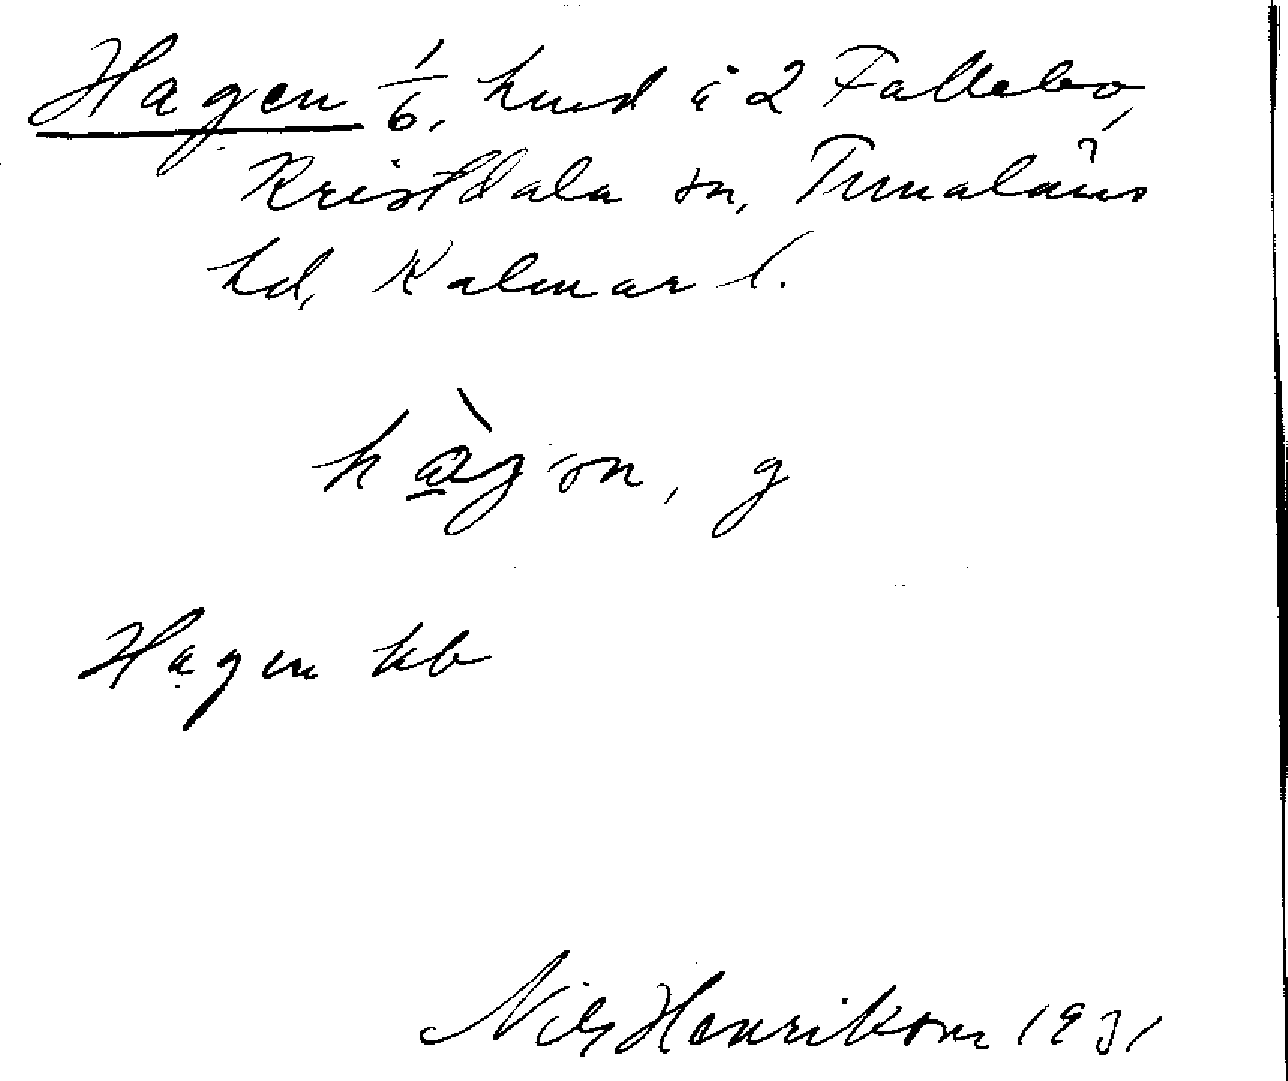 Hagen 1/6, hmd å 2 Fallebo,
Kristdala sn, Tunaläns
hd, Kalmar l.
hàgən, g
Hagen kb
Nils Henriksson 1931